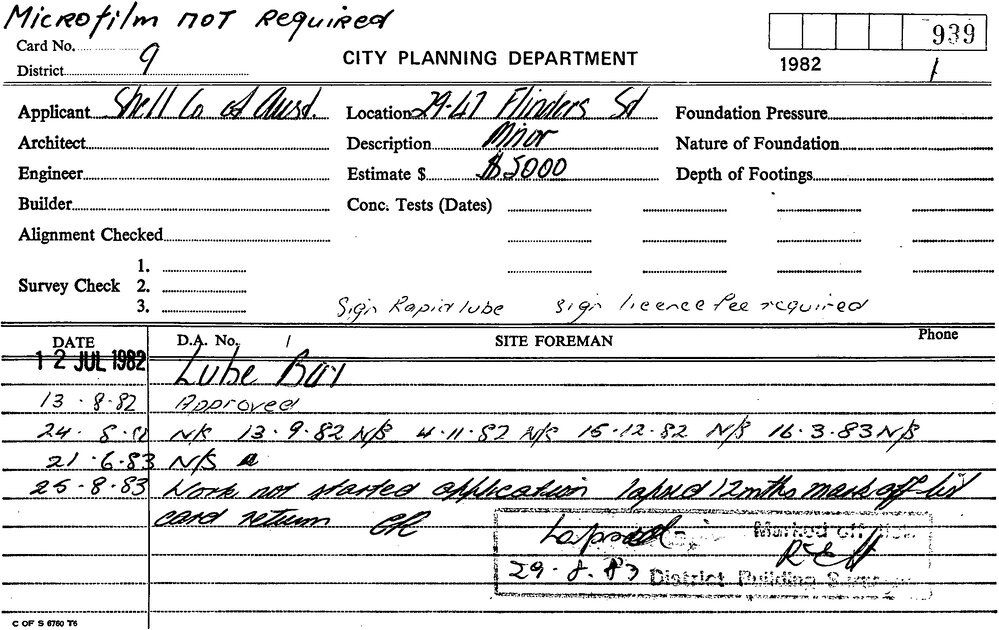 Microfilm not Required
Card No. 939
District 9 CITY PLANNING DEPARTMENT 1982 1
Applicant Shell Co of Aust. Location 29-47 Flinders St Foundation Pressure
Architect Description Minor Nature of Foundation
Engineer Estimate $ $5000 Depth of Footings
Builder Conc. Tests (Dates)
Alignment Checked
1.
Survey Check 2.
3.
Sign Rapid lube Sign licence fee required
DATE D.A. No. / SITE FOREMAN Phone
12 JUL 1982 Lube Bay
13 . 8 . 82 Approved
24 . 8 . 82 N/S 13 . 9 . 82 N/S 4 . 11 . 82 N/S 15 . 12 . 82 N/S 16 . 3 . 83 N/S
21 . 6 . 83 N/S
25 . 8 . 83 Work not started application lapsed 12 mths mark off list
card return
Lapsed - Marked off
29 . 8 . 83 District Building Surveyor
C OF S 6760 T6